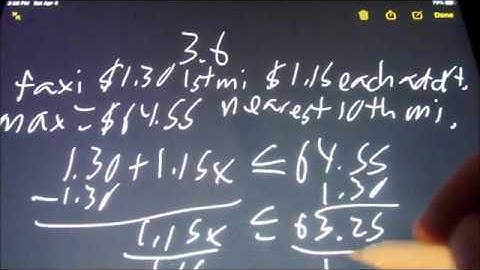 3:56 PM Sat Apr 4
77%
Done
3.6
taxi $1.30 1st mi $1.15 each add'l.
max = $64.55 nearest 10th mi.
1.30 + 1.15x ≤ 64.55
-1.30 1.30
1.15x ≤ 63.25